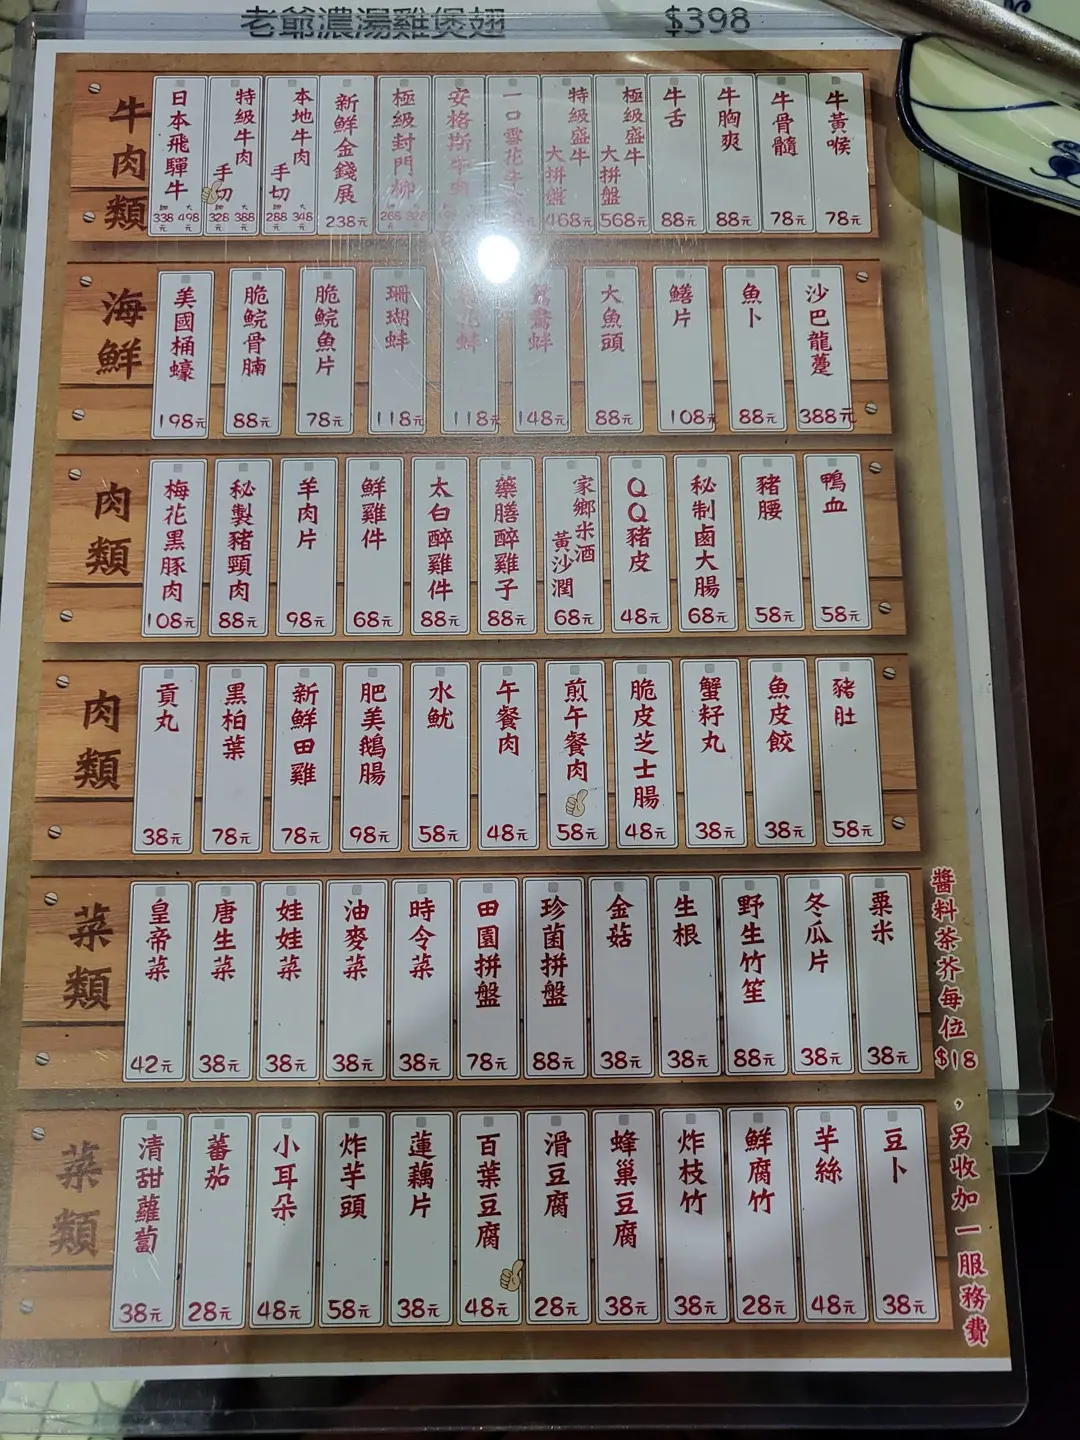 老爺濃湯雞煲翅 $398
牛肉類
日本飛驒牛 細338元 大498元
特級牛肉 手切 細328元 大388元
本地牛肉 手切 細288元 大348元
新鮮金錢展 238元
極級封門柳 268元 328元
安格斯牛
一口雪花牛
特級盛牛 大拼盤 468元
極級盛牛 大拼盤 568元
牛舌 88元
牛胸爽 88元
牛骨髓 78元
牛黃喉 78元
海鮮
美國桶蠔 198元
脆鯇骨腩 88元
脆鯇魚片 78元
珊瑚蚌 118元
花蚌 118元
鴛鴦蚌 148元
大魚頭 88元
鱔片 108元
魚卜 88元
沙巴龍躉 388元
肉類
梅花黑豚肉 108元
秘製豬頸肉 88元
羊肉片 98元
鮮雞件 68元
太白醉雞件 88元
藥膳醉雞子 88元
家鄉米酒 黃沙潤 68元
QQ豬皮 48元
秘制鹵大腸 68元
豬腰 58元
鴨血 58元
肉類
貢丸 38元
黑柏葉 78元
新鮮田雞 78元
肥美鵝腸 98元
水魷 58元
午餐肉 48元
煎午餐肉 58元
脆皮芝士腸 48元
蟹籽丸 38元
魚皮餃 38元
豬肚 58元
菜類
皇帝菜 42元
唐生菜 38元
娃娃菜 38元
油麥菜 38元
時令菜 38元
田園拼盤 78元
珍菌拼盤 88元
金菇 38元
生根 38元
野生竹笙 88元
冬瓜片 38元
粟米 38元
菜類
清甜蘿蔔 38元
蕃茄 28元
小耳朵 48元
炸芋頭 58元
蓮藕片 38元
百葉豆腐 48元
滑豆腐 28元
蜂巢豆腐 38元
炸枝竹 38元
鮮腐竹 28元
芋絲 48元
豆卜 38元
醬料茶芥每位$18，另收加一服務費